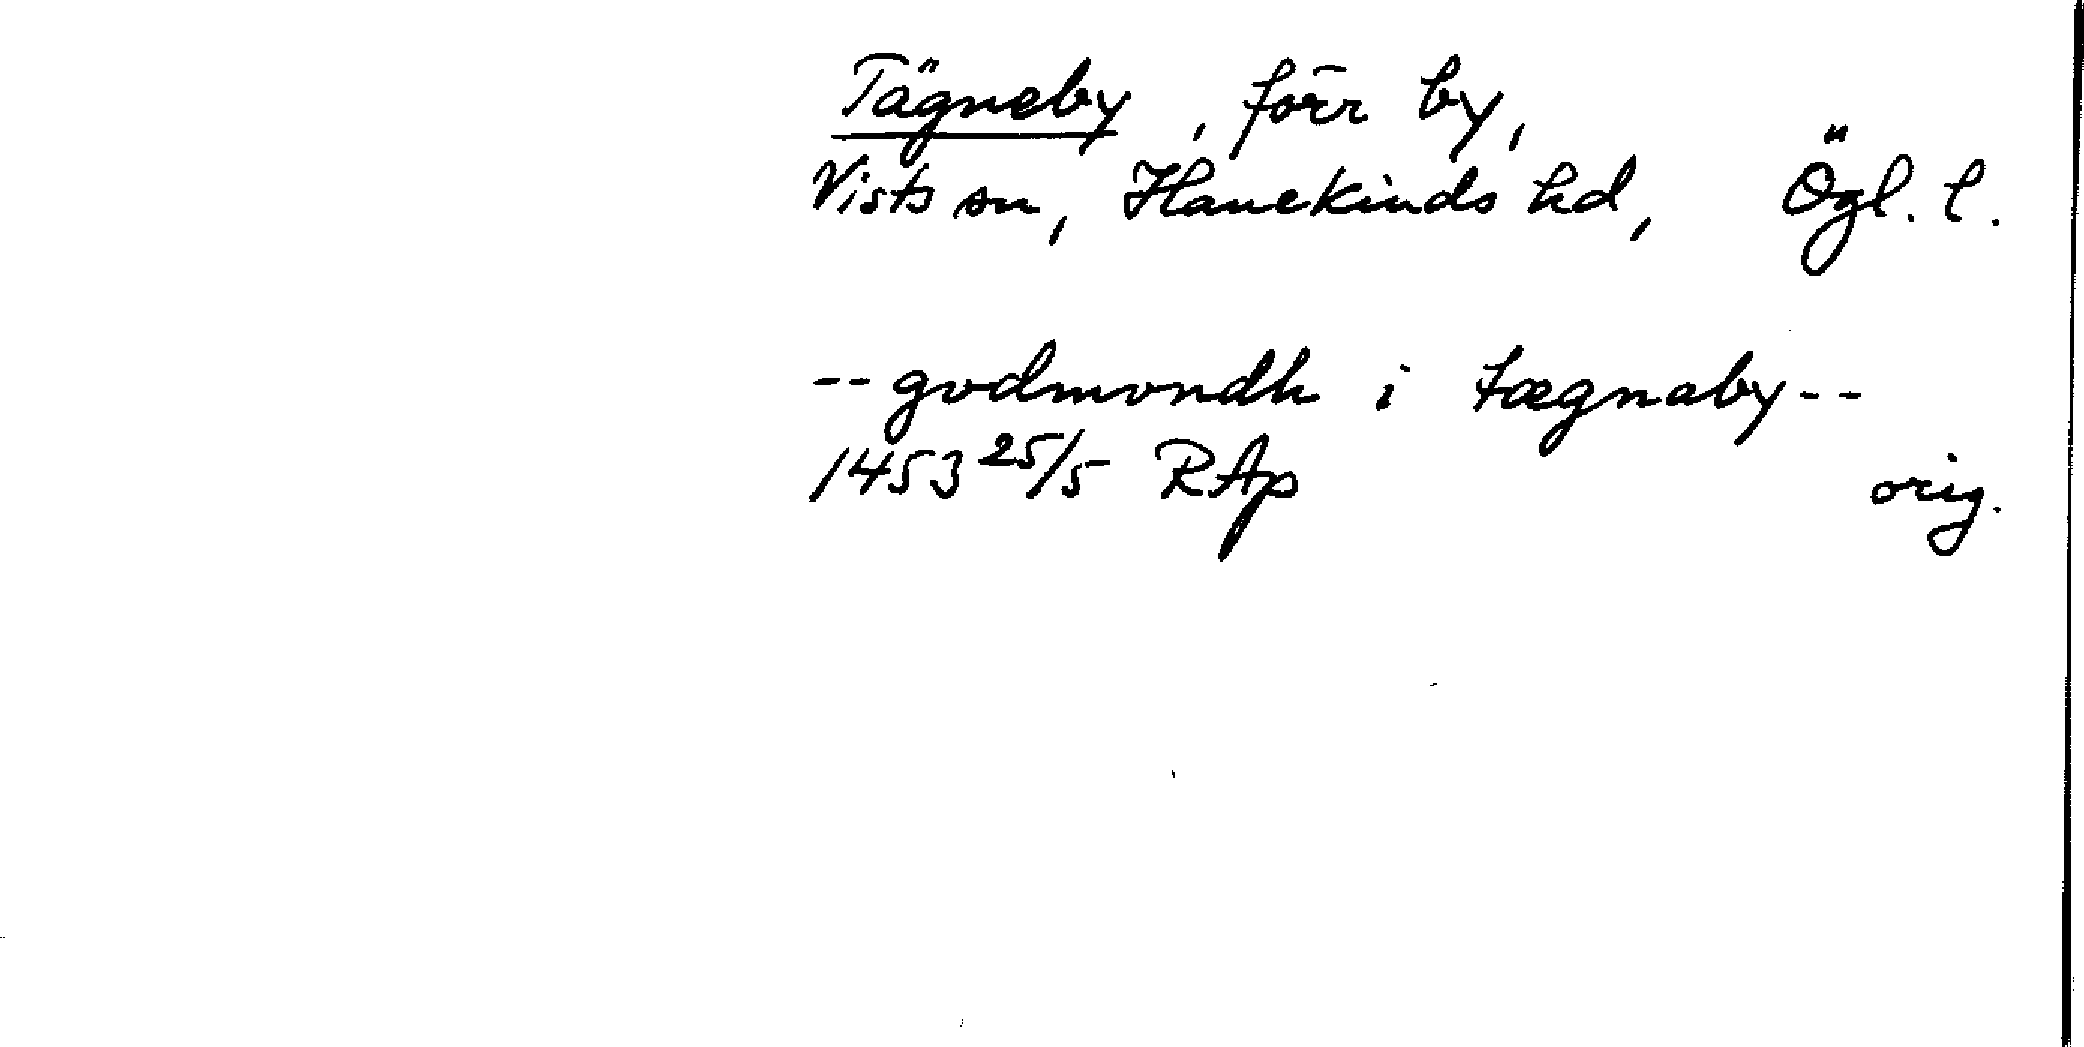 Tägneby, förr by,
Vists sn, Hanekinds hd, Ögl. l.
-- godmondh i tægnaby --
1453 25/5 RAp orig.